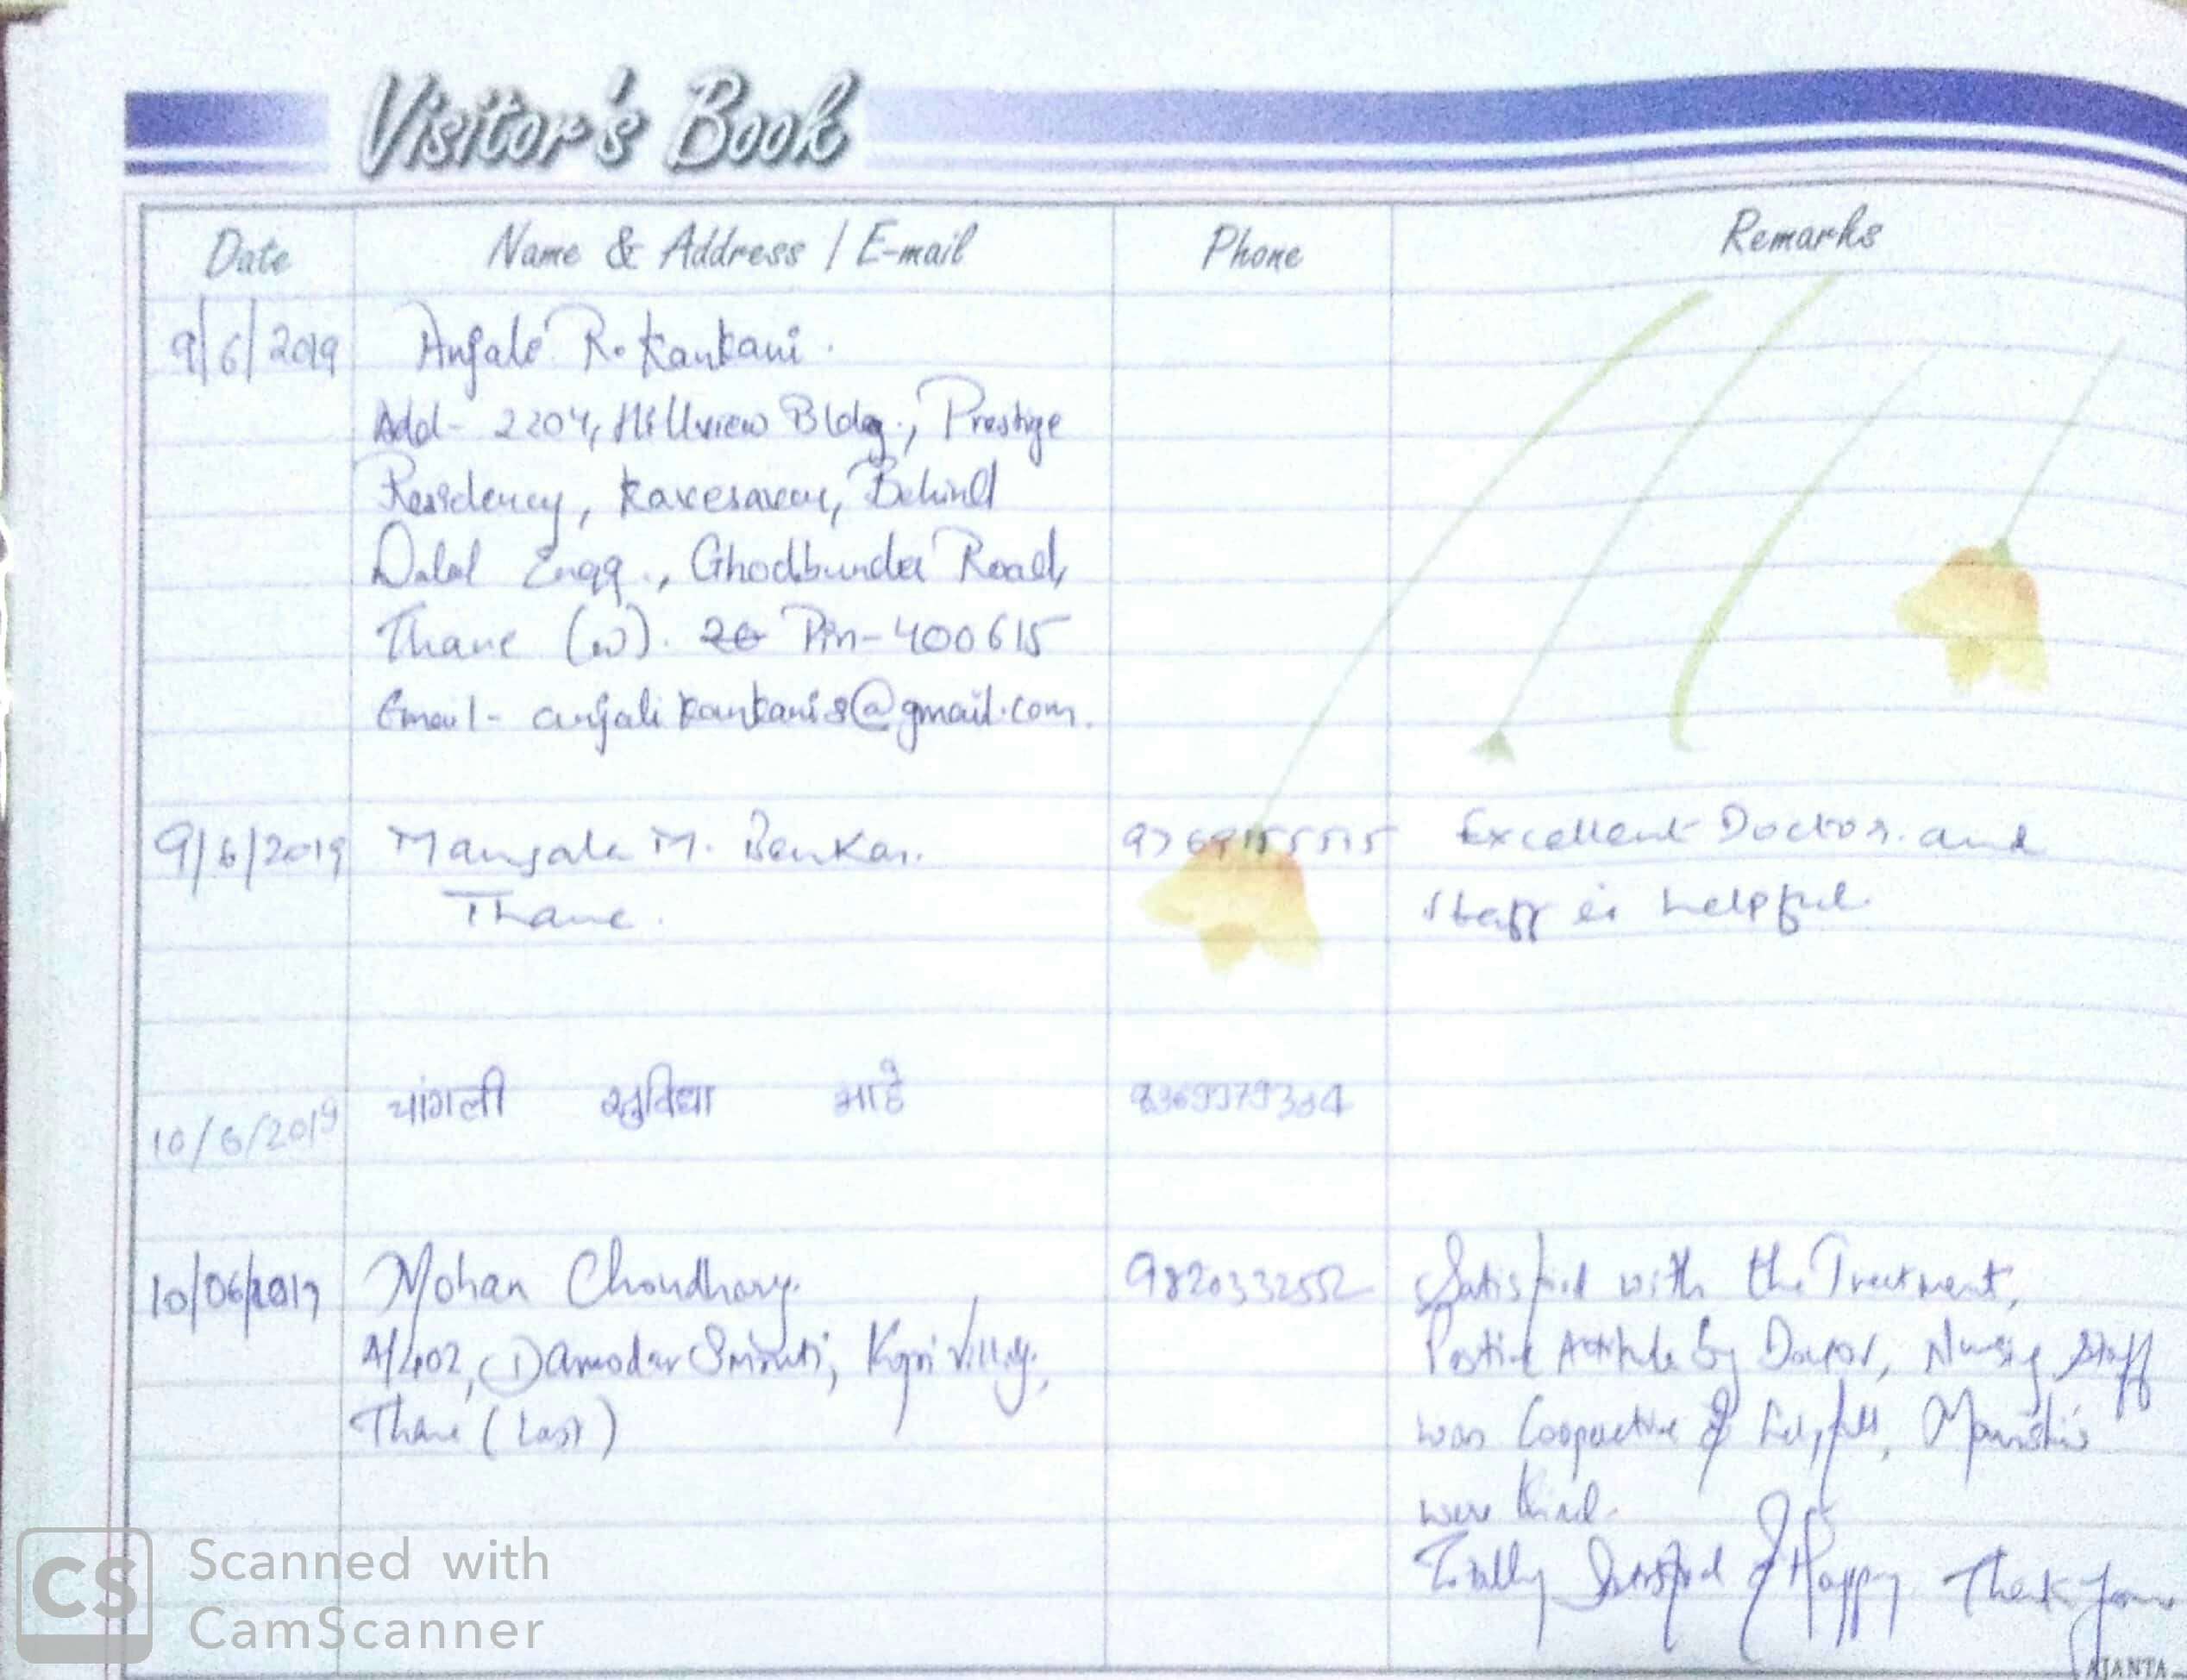 Visitor's Book
Date Name & Address / E-mail Phone Remarks
9/6/2019 Anjali R. Kankani.
Add- 2204, Hillview Bldg., Prestige
Residency, Kavesavar, Behind
Dalal Engg., Ghodbunder Road,
Thane (W). Pin-400615
Email- anjalikankani8@gmail.com.
9/6/2019 Mangala M. Benkar. Excellent Doctor. and
Thane. Staff is helpful.
10/6/2019 चांगली सुविधा आहे
10/06/2019 Mohan Choudhary. 9820332552 Satisfied with the Treatment,
A/402, Damodar Smruti, Kopri Village, Positive Attitude by Doctor, Nursing Staff
Thane (East) was Cooperative & helpful,
were kind.
Totally Satisfied & Happy Thank you
CS Scanned with
CamScanner
AJANTA